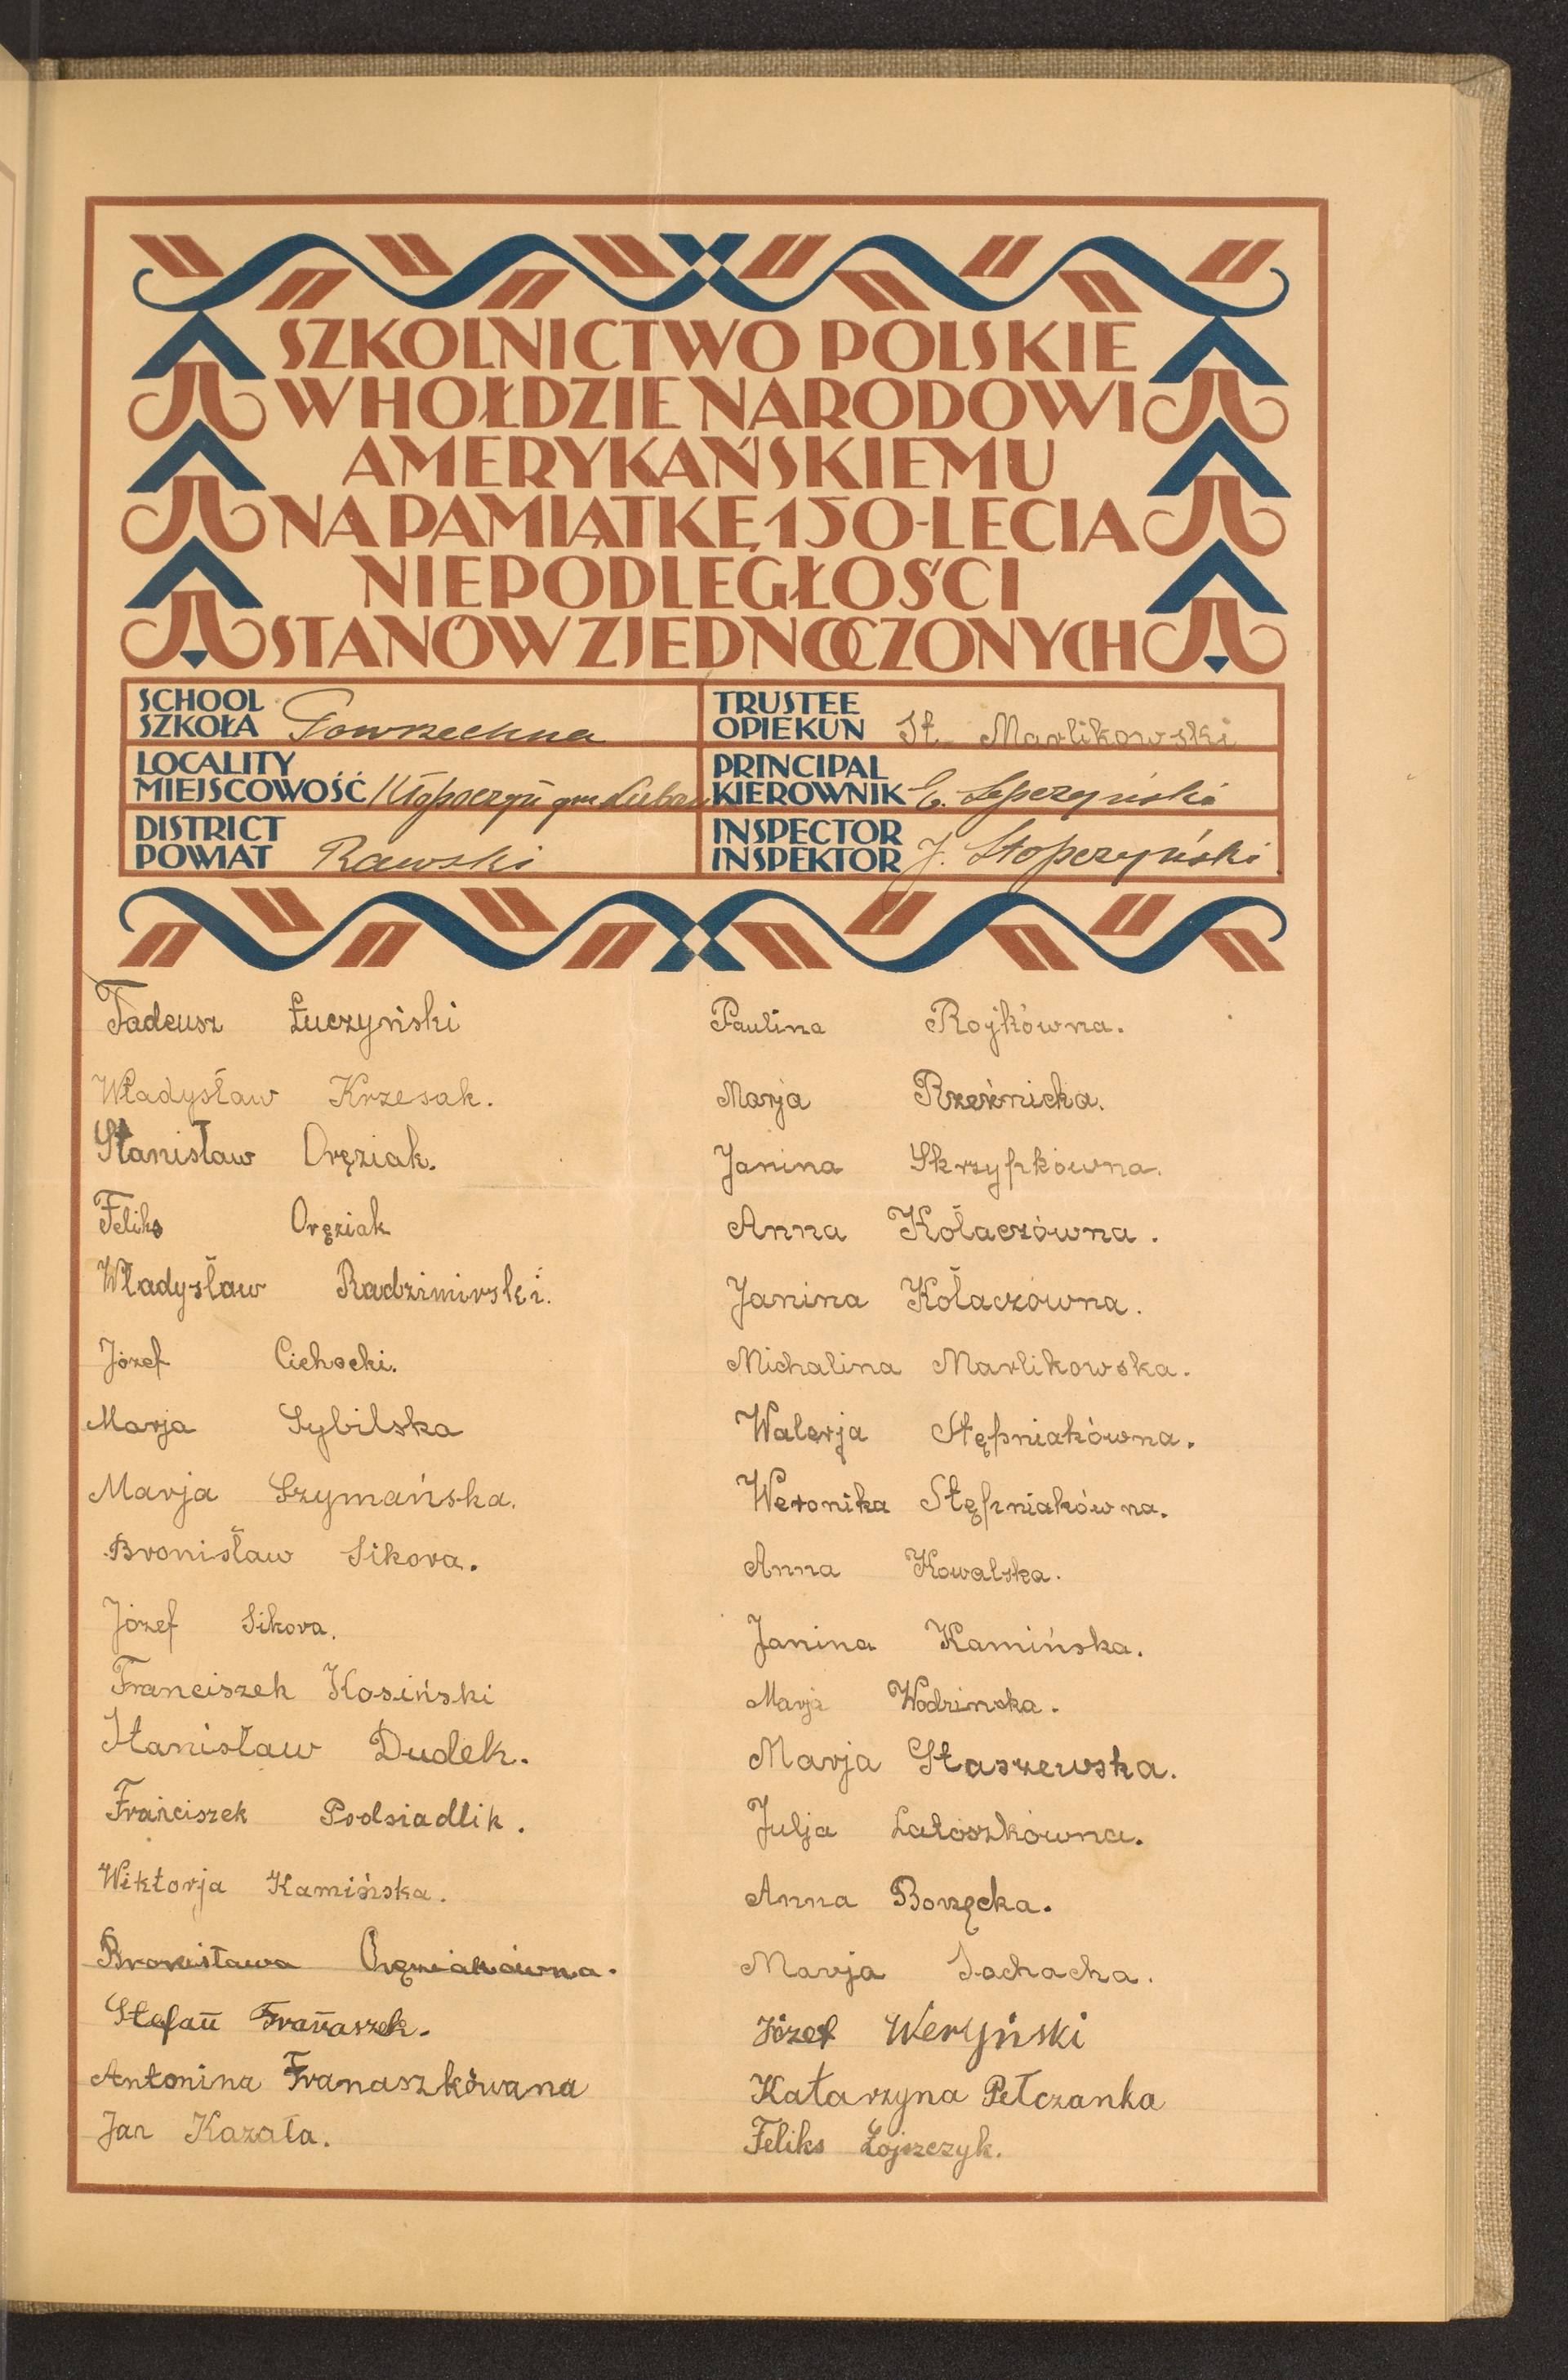 SZKOLNICTWO POLSKIE
W HOŁDZIE NARODOWI
AMERYKAŃSKIEMU
NA PAMIĄTKĘ 150-LECIA
NIEPODLEGŁOŚCI
STANÓW ZJEDNOCZONYCH
SCHOOL
SZKOŁA Powszechna
TRUSTEE
OPIEKUN St. Marlikowski
LOCALITY
MIEJSCOWOŚĆ Kłopoczyn gm Lubania
PRINCIPAL
KIEROWNIK
DISTRICT
POWIAT Rawski
INSPECTOR
INSPEKTOR J. Stopczyński
Tadeusz Łuczyński
Władysław Krzesak.
Stanisław Oręziak.
Feliks Oręziak
Władysław Radzimirski.
Józef Cichocki.
Marja Sybilska
Marja Szymańska.
Bronisław Sikora.
Józef Sikora.
Franciszek Kosiński
Stanisław Dudek.
Franciszek Podsiadlik.
Wiktorja Kamińska.
Bronisława Oręziakówna.
Stefan Franaszek.
Antonina Franaszkówana
Jan Kazała.
Paulina Rojkówna.
Marja Rzeźnicka.
Janina Skrzypkówna.
Anna Kołaczówna.
Janina Kołaczówna.
Michalina Marlikowska.
Walerja Stępniakówna.
Weronika Stępniakówna.
Anna Kowalska.
Janina Kamińska.
Marja Wodzinska.
Marja Staszewska.
Julja Latoszkówna.
Anna Borzęcka.
Marja Sochacka.
Józef Weryński
Katarzyna Pełczanka
Feliks Łojszczyk.